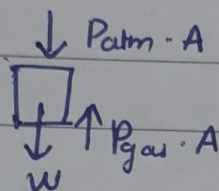 Patm · A
Pgas · A
W